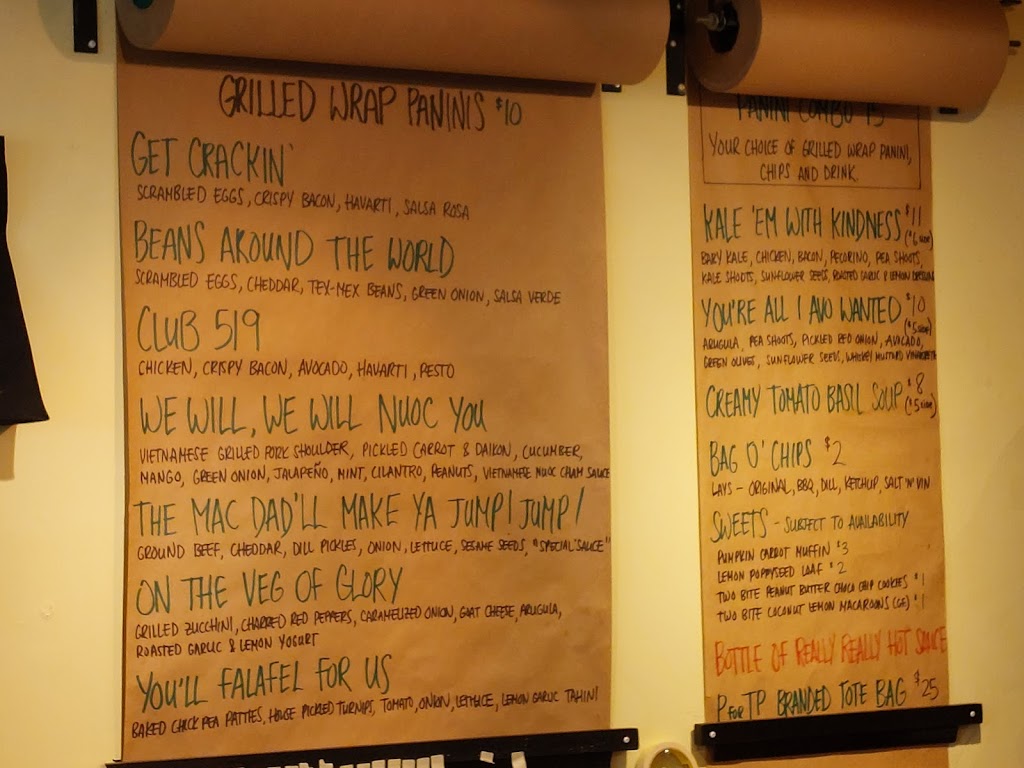 GRILLED WRAP PANINIS $10
GET CRACKIN'
SCRAMBLED EGGS, CRISPY BACON, HAVARTI, SALSA ROSA
BEANS AROUND THE WORLD
SCRAMBLED EGGS, CHEDDAR, TEX-MEX BEANS, GREEN ONION, SALSA VERDE
CLUB 519
CHICKEN, CRISPY BACON, AVOCADO, HAVARTI, PESTO
WE WILL, WE WILL NUOC YOU
VIETNAMESE GRILLED PORK SHOULDER, PICKLED CARROT & DAIKON, CUCUMBER,
MANGO, GREEN ONION, JALAPEÑO, MINT, CILANTRO, PEANUTS, VIETNAMESE NUOC CHAM SAUCE
THE MAC DAD'LL MAKE YA JUMP! JUMP!
GROUND BEEF, CHEDDAR, DILL PICKLES, ONION, LETTUCE, SESAME SEEDS, "SPECIAL SAUCE"
ON THE VEG OF GLORY
GRILLED ZUCCHINI, CHARRED RED PEPPERS, CARAMELIZED ONION, GOAT CHEESE, ARUGULA,
ROASTED GARLIC & LEMON YOGURT
YOU'LL FALAFEL FOR US
BAKED CHICK PEA PATTIES, HOUSE PICKLED TURNIPS, TOMATO, ONION, LETTUCE, LEMON GARLIC TAHINI
PANINI COMBO 15
YOUR CHOICE OF GRILLED WRAP PANINI,
CHIPS AND DRINK
KALE 'EM WITH KINDNESS $11
($6 SIDE)
BABY KALE, CHICKEN, BACON, PECORINO, PEA SHOOTS,
KALE SHOOTS, SUNFLOWER SEEDS, ROASTED GARLIC & LEMON DRESSING
YOU'RE ALL I AVO WANTED $10
($5 SIDE)
ARUGULA, PEA SHOOTS, PICKLED RED ONION, AVOCADO,
GREEN OLIVES, SUNFLOWER SEEDS, WHISKEY MUSTARD VINAIGRETTE
CREAMY TOMATO BASIL SOUP $8
($5 SIDE)
BAG O' CHIPS $2
LAYS - ORIGINAL, BBQ, DILL, KETCHUP, SALT 'N' VIN
SWEETS - SUBJECT TO AVAILABILITY
PUMPKIN CARROT MUFFIN $3
LEMON POPPYSEED LOAF $2
TWO BITE PEANUT BUTTER CHOCO CHIP COOKIES $1
TWO BITE COCONUT LEMON MACAROONS (GF) $1
BOTTLE OF REALLY REALLY HOT SAUCE
P FOR TP BRANDED TOTE BAG $25